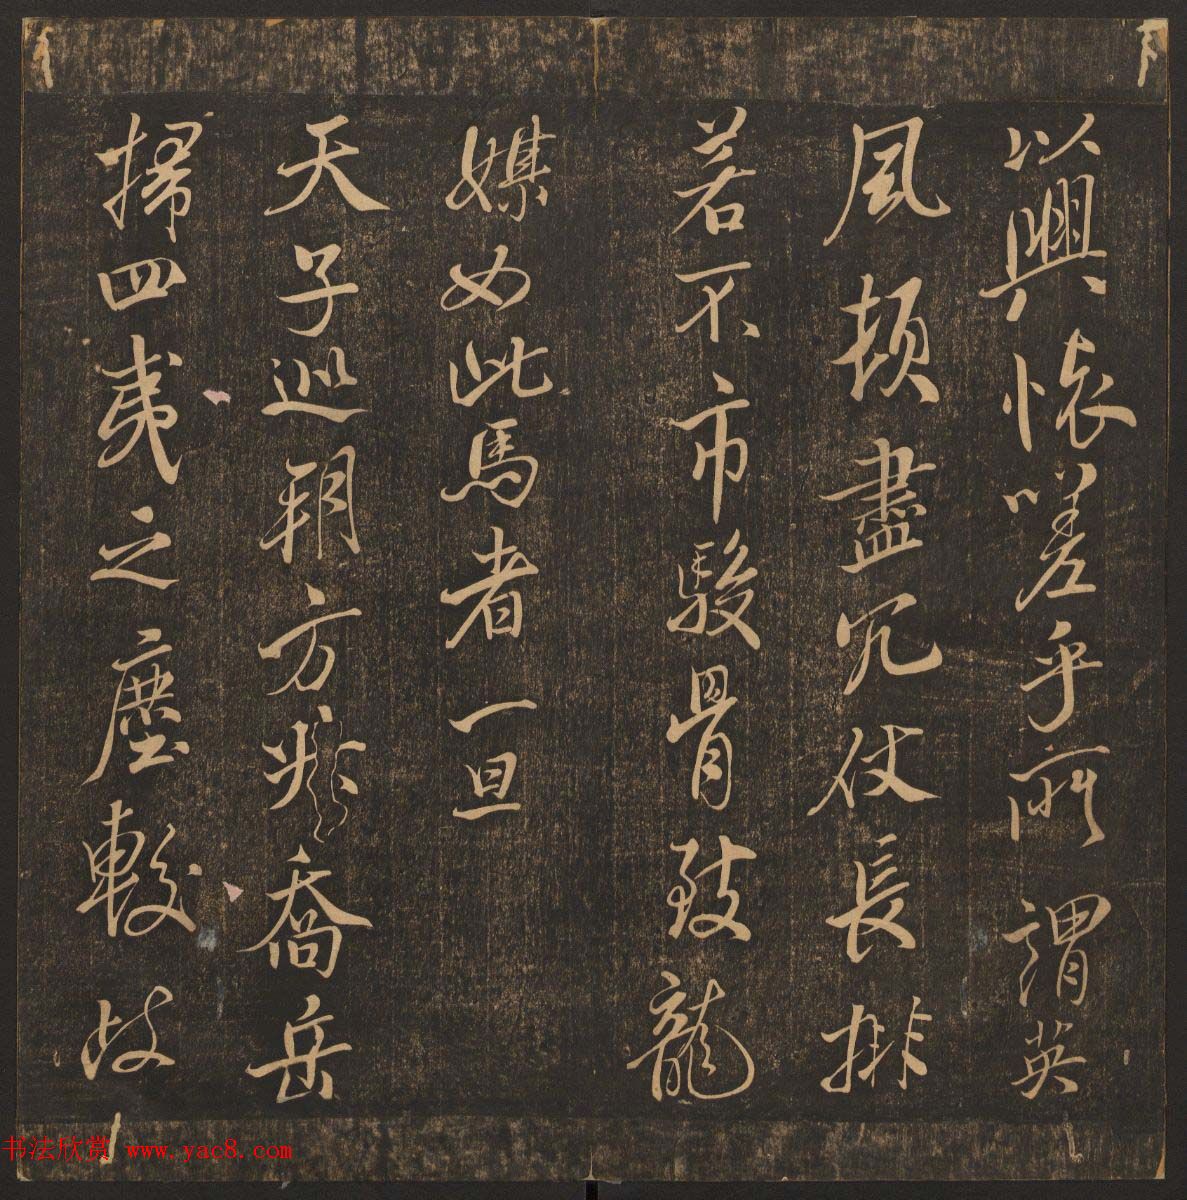 以興懷嗟乎所謂英
風頓盡冗仗長排
若不市駿骨致龍
媒如此馬者一旦
天子巡朔方喬岳
掃四夷之塵較歧
书法欣赏 www.yac8.com